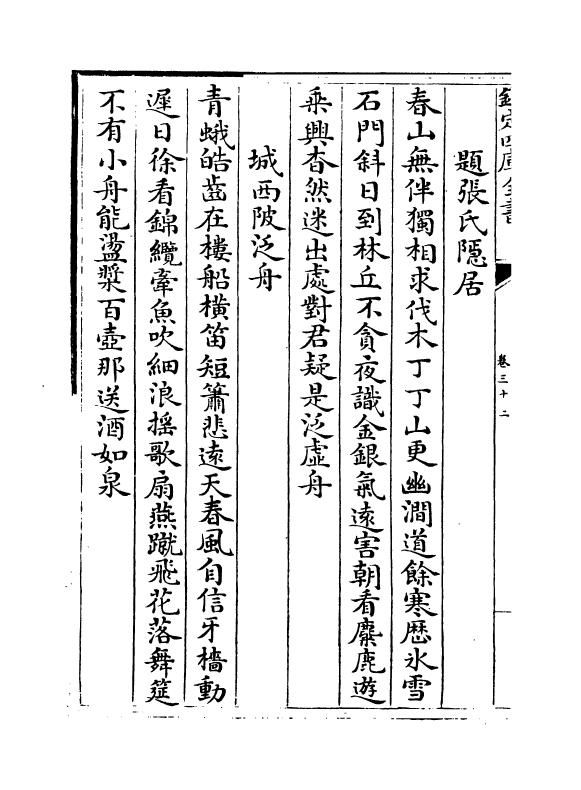 欽定四庫全書
卷三十二
題張氏隱居
春山無伴獨相求伐木丁丁山更幽澗道餘寒歷氷雪
石門斜日到林丘不貪夜識金銀氣遠害朝看麋鹿遊
乗興杳然迷出處對君疑是泛虛舟
城西陂泛舟
青蛾皓齒在樓船橫笛短簫悲遠天春風自信牙檣動
遲日徐看錦纜牽魚吹細浪揺歌扇燕蹴飛花落舞筵
不有小舟能盪槳百壺那送酒如泉